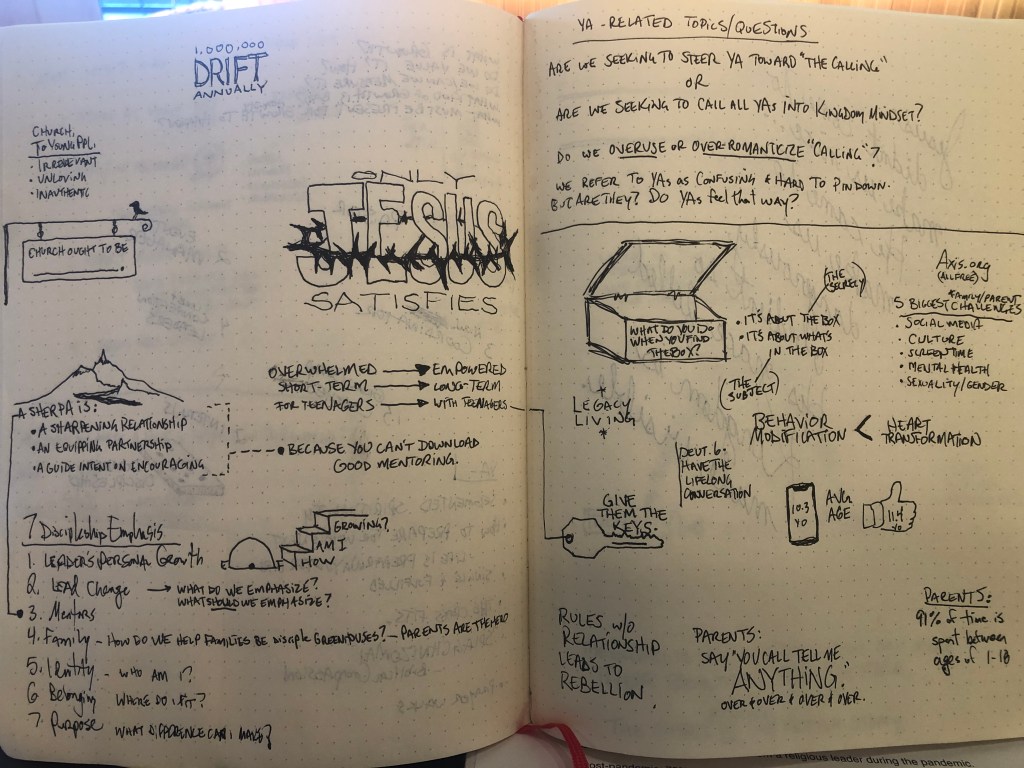 1,000,000
DRIFT
ANNUALLY
CHURCH,
To Young PPL,
• IRRELEVANT
• UNLOVING
• INAUTHENTIC
CHURCH OUGHT TO BE
______.
ONLY
JESUS
SATISFIES
OVERWHELMED → EMPOWERED
SHORT-TERM → LONG-TERM
FOR TEENAGERS → WITH TEENAGERS
A SHERPA IS:
• A SHARPENING RELATIONSHIP
• AN EQUIPPING PARTNERSHIP
• A GUIDE INTENT ON ENCOURAGING
• BECAUSE YOU CAN'T DOWNLOAD
GOOD MENTORING.
7 Discipleship Emphasis
GROWING?
AM I
HOW
1. LEADER'S PERSONAL GROWTH
2. LEAD CHANGE → WHAT DO WE EMPHASIZE?
WHAT SHOULD WE EMPHASIZE?
3. Mentors
4. Family - HOW DO WE HELP FAMILIES BE DISCIPLE GREENHOUSES? - PARENTS ARE THE HERO
5. Identity - WHO AM I?
6 Belonging WHERE DO I FIT?
7. Purpose WHAT DIFFERENCE CAN I MAKE?
YA-RELATED TOPICS/QUESTIONS
ARE WE SEEKING TO STEER YA TOWARD "THE CALLING"
OR
ARE WE SEEKING TO CALL ALL YAs INTO KINGDOM MINDSET?
DO WE OVERUSE OR OVER-ROMANTICIZE "CALLING"?
WE REFER TO YAs AS CONFUSING & HARD TO PIN DOWN.
BUT ARE THEY? DO YAs feel that way?
WHAT DO YOU DO
WHEN YOU FIND
THE BOX?
(THE
SECRET)
• IT'S ABOUT THE BOX
• IT'S ABOUT WHAT'S
IN THE BOX
(THE
SUBJECT)
Axis.org
(ALL FREE)
*FAMILY/PARENT
5 BIGGEST CHALLENGES
• SOCIAL MEDIA
• CULTURE
• SCREENTIME
• MENTAL HEALTH
• SEXUALITY/GENDER
LEGACY
LIVING
*
BEHAVIOR
MODIFICATION < HEART
TRANSFORMATION
DEUT. 6.
HAVE THE
LIFELONG
CONVERSATION
GIVE
THEM THE
KEYS.
10.3
YO
AVG
AGE
11.4
YO
RULES W/O
RELATIONSHIP
LEADS TO
REBELLION.
PARENTS:
SAY "YOU CALL TELL ME
ANYTHING."
OVER & OVER & OVER & OVER.
PARENTS:
91% of time is
spent between
ages of 1-18
religious leader during the pandemic.